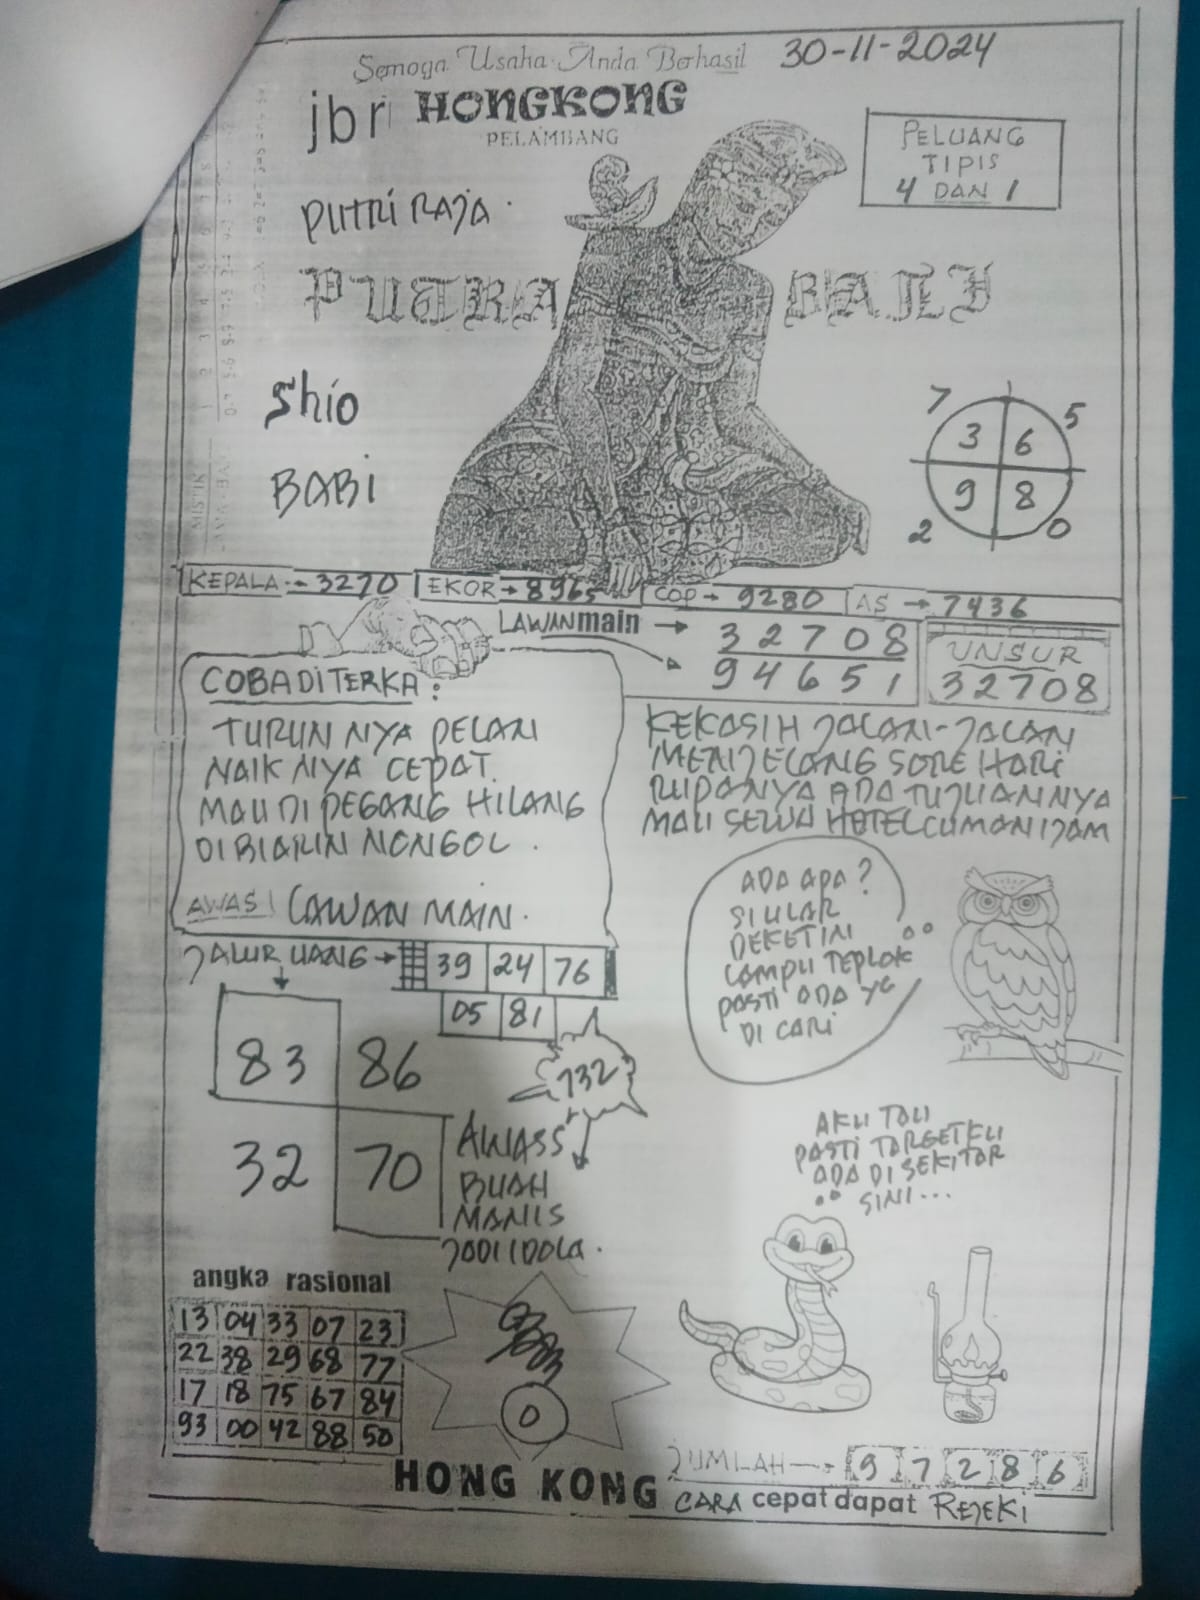 Semoga Usaha Anda Berhasil
30-11-2024
jbr HONGKONG
PELAMBANG
PELUANG
TIPIS
4 DAN 1
PUTRI RAJA
PUTRA BALI
Shio
BABI
7 5
3 6
9 8
2 0
KEPALA → 3270
EKOR → 8965
COP → 9280
AS → 7436
LAWAN main → 32708
94651
UNSUR
32708
COBA DI TERKA :
TURUN NYA PELAN
NAIK NYA CEPAT.
MAU DI PEGANG HILANG
DI BIARIN NONGOL .
AWAS! LAWAN MAIN.
KEKASIH JALAN-JALAN
MENJELANG SORE HARI
RUPANYA ADA TUJUANNYA
MAU SEWA HOTEL CUMAN 1 JAM
ADA APA ?
SI ULAR
DEKETIN
LAMPU TEPLOK
PASTI ADA YG
DI CARI
JALUR UANG → 39 24 76
05 81
83 86
32 70
732
AWASS
BUAH
MANIS
JODI IDOLA .
AKU TAU
PASTI TARGETKU
ADA DI SEKITAR
SINI ...
angka rasional
13 04 33 07 23
22 38 29 68 77
17 18 75 67 84
93 00 42 88 50
0
JUMLAH → 9 7 2 8 6
HONG KONG
CARA cepat dapat REJEKI